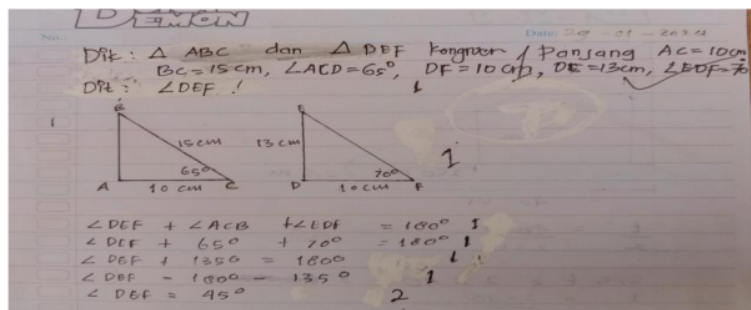 DEMON
No.:
Date: 29 - 01 - 2024
Dik : Δ ABC dan Δ DEF kongruen / Panjang AC = 10 cm
BC = 15 cm, ∠ACD = 65°, DF = 10 cm, DE = 13 cm, ∠EDF = 70
Dit : ∠DEF !
1
1
B
15 cm
65°
A
10 cm
C
E
13 cm
70°
D
10 cm
F
1
∠ DEF + ∠ ACB + ∠ EDF = 180° 1
∠ DEF + 65° + 70° = 180° 1
∠ DEF + 135° = 1800 1
∠ DEF = 180° - 135° 1
∠ DEF = 45° 2